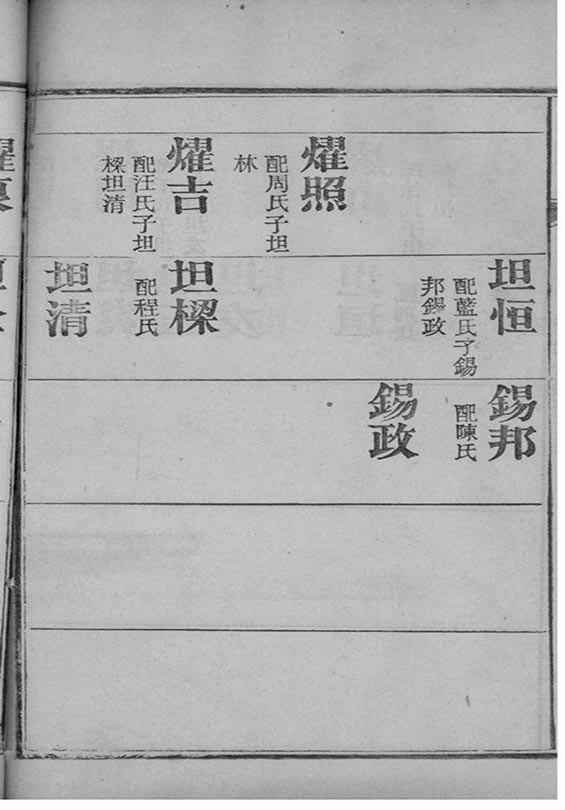 燿照
配周氏子坦
林
燿吉
配汪氏子坦
樑坦清
坦恒
配藍氏子錫
邦錫政
坦樑
配程氏
坦清
錫邦
配陳氏
錫政